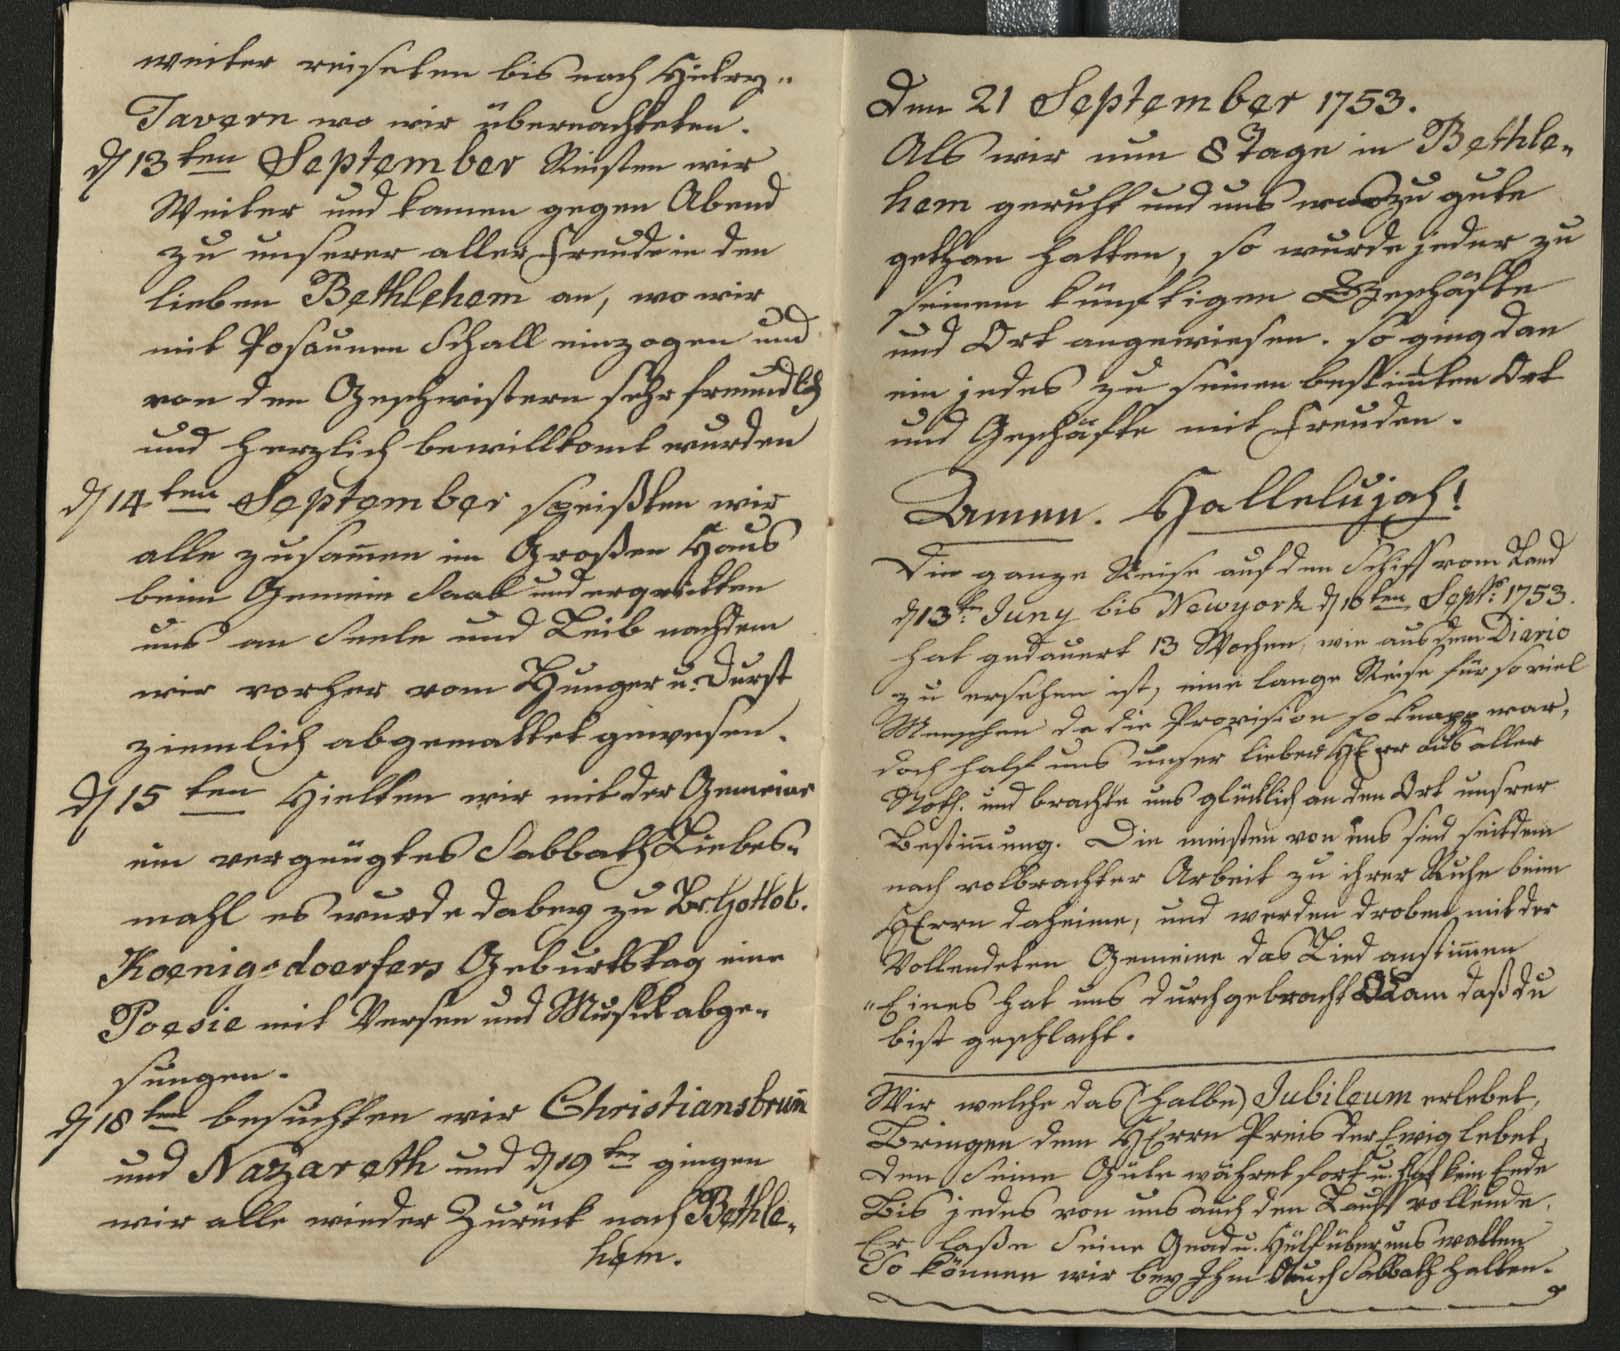 weiter reiseten bis nach Hickry„
Tavern wo wir übernachteten.
d 13ten September Reisten wir
Weiter und kamen gegen Abend
zu unserer aller Freude in den
lieben Bethlehem an, wo wir
mit Posaunen Schall einzogen und
von den Geschwistern sehr freundlich
und herzlich bewillkomt wurden
d 14ten September speißten wir
alle zusam̄en im Großen Haus
beim Gemein Saal und erquickten
uns an Seele und Leib nachdem
wir vorher vom Hunger u. Durst
ziemlich abgemattet gewesen.
d 15ten Hielten wir mit der Gemeine
ein vergnügtes Sabbath Liebes„
mahl es wurde dabey zu Br. Gottlob.
Koenigsdoerfers Geburtstag eine
Poesie mit Versen und Musick abge„
sungen.
d 18ten besuchten wir Christiansbrun̄
und Nazareth und d 19ten gingen
wir alle wieder Zurück nach Bethle„
hem.
Den 21 September 1753.
Als wir nun 8 Tage in Bethle„
hem geruht und uns was zu gute
gethan hatten, so wurde jeder zu
seinem künftigen Geschäfte
und Ort angewiesen. so ging dan
ein jedes zu seinen bestim̄ten Ort
und Geschäfte mit Freuden.
Amen. Hallelujah!
Die ganze Reise auf den Schiff vom Land
d 13ten Juny bis Newyork d 10ten Septr. 1753.
hat gedauert 13 Wochen, wie aus dem Diario
zu ersehen ist, eine lange Reise für so viel
Menschen da die Provision so knapp war,
doch half uns unser lieber HErr aus aller
Noth. und brachte uns glücklich an den Ort unsrer
Bestim̄ung. Die meisten von uns sind seitdem
nach volbrachter Arbeit zu ihrer Ruhe beim
HErrn daheime, und werden droben mit der
Vollendeten Gemeine das Lied anstim̄en
„Eines hat uns durchgebracht Lam daß du
bist geschlacht.
Wir welche das (halbe) Jubileum erlebet,
Bringen dem HErrn Preis der Ewig lebet,
Den Seine Güte währet fort u. hat kein Ende
Bis jedes von uns auch den Lauff vollende.
Er laße Seine Gnad u. Hülf über uns walten
So können wir bey Ihm Auch Sabbath halten.